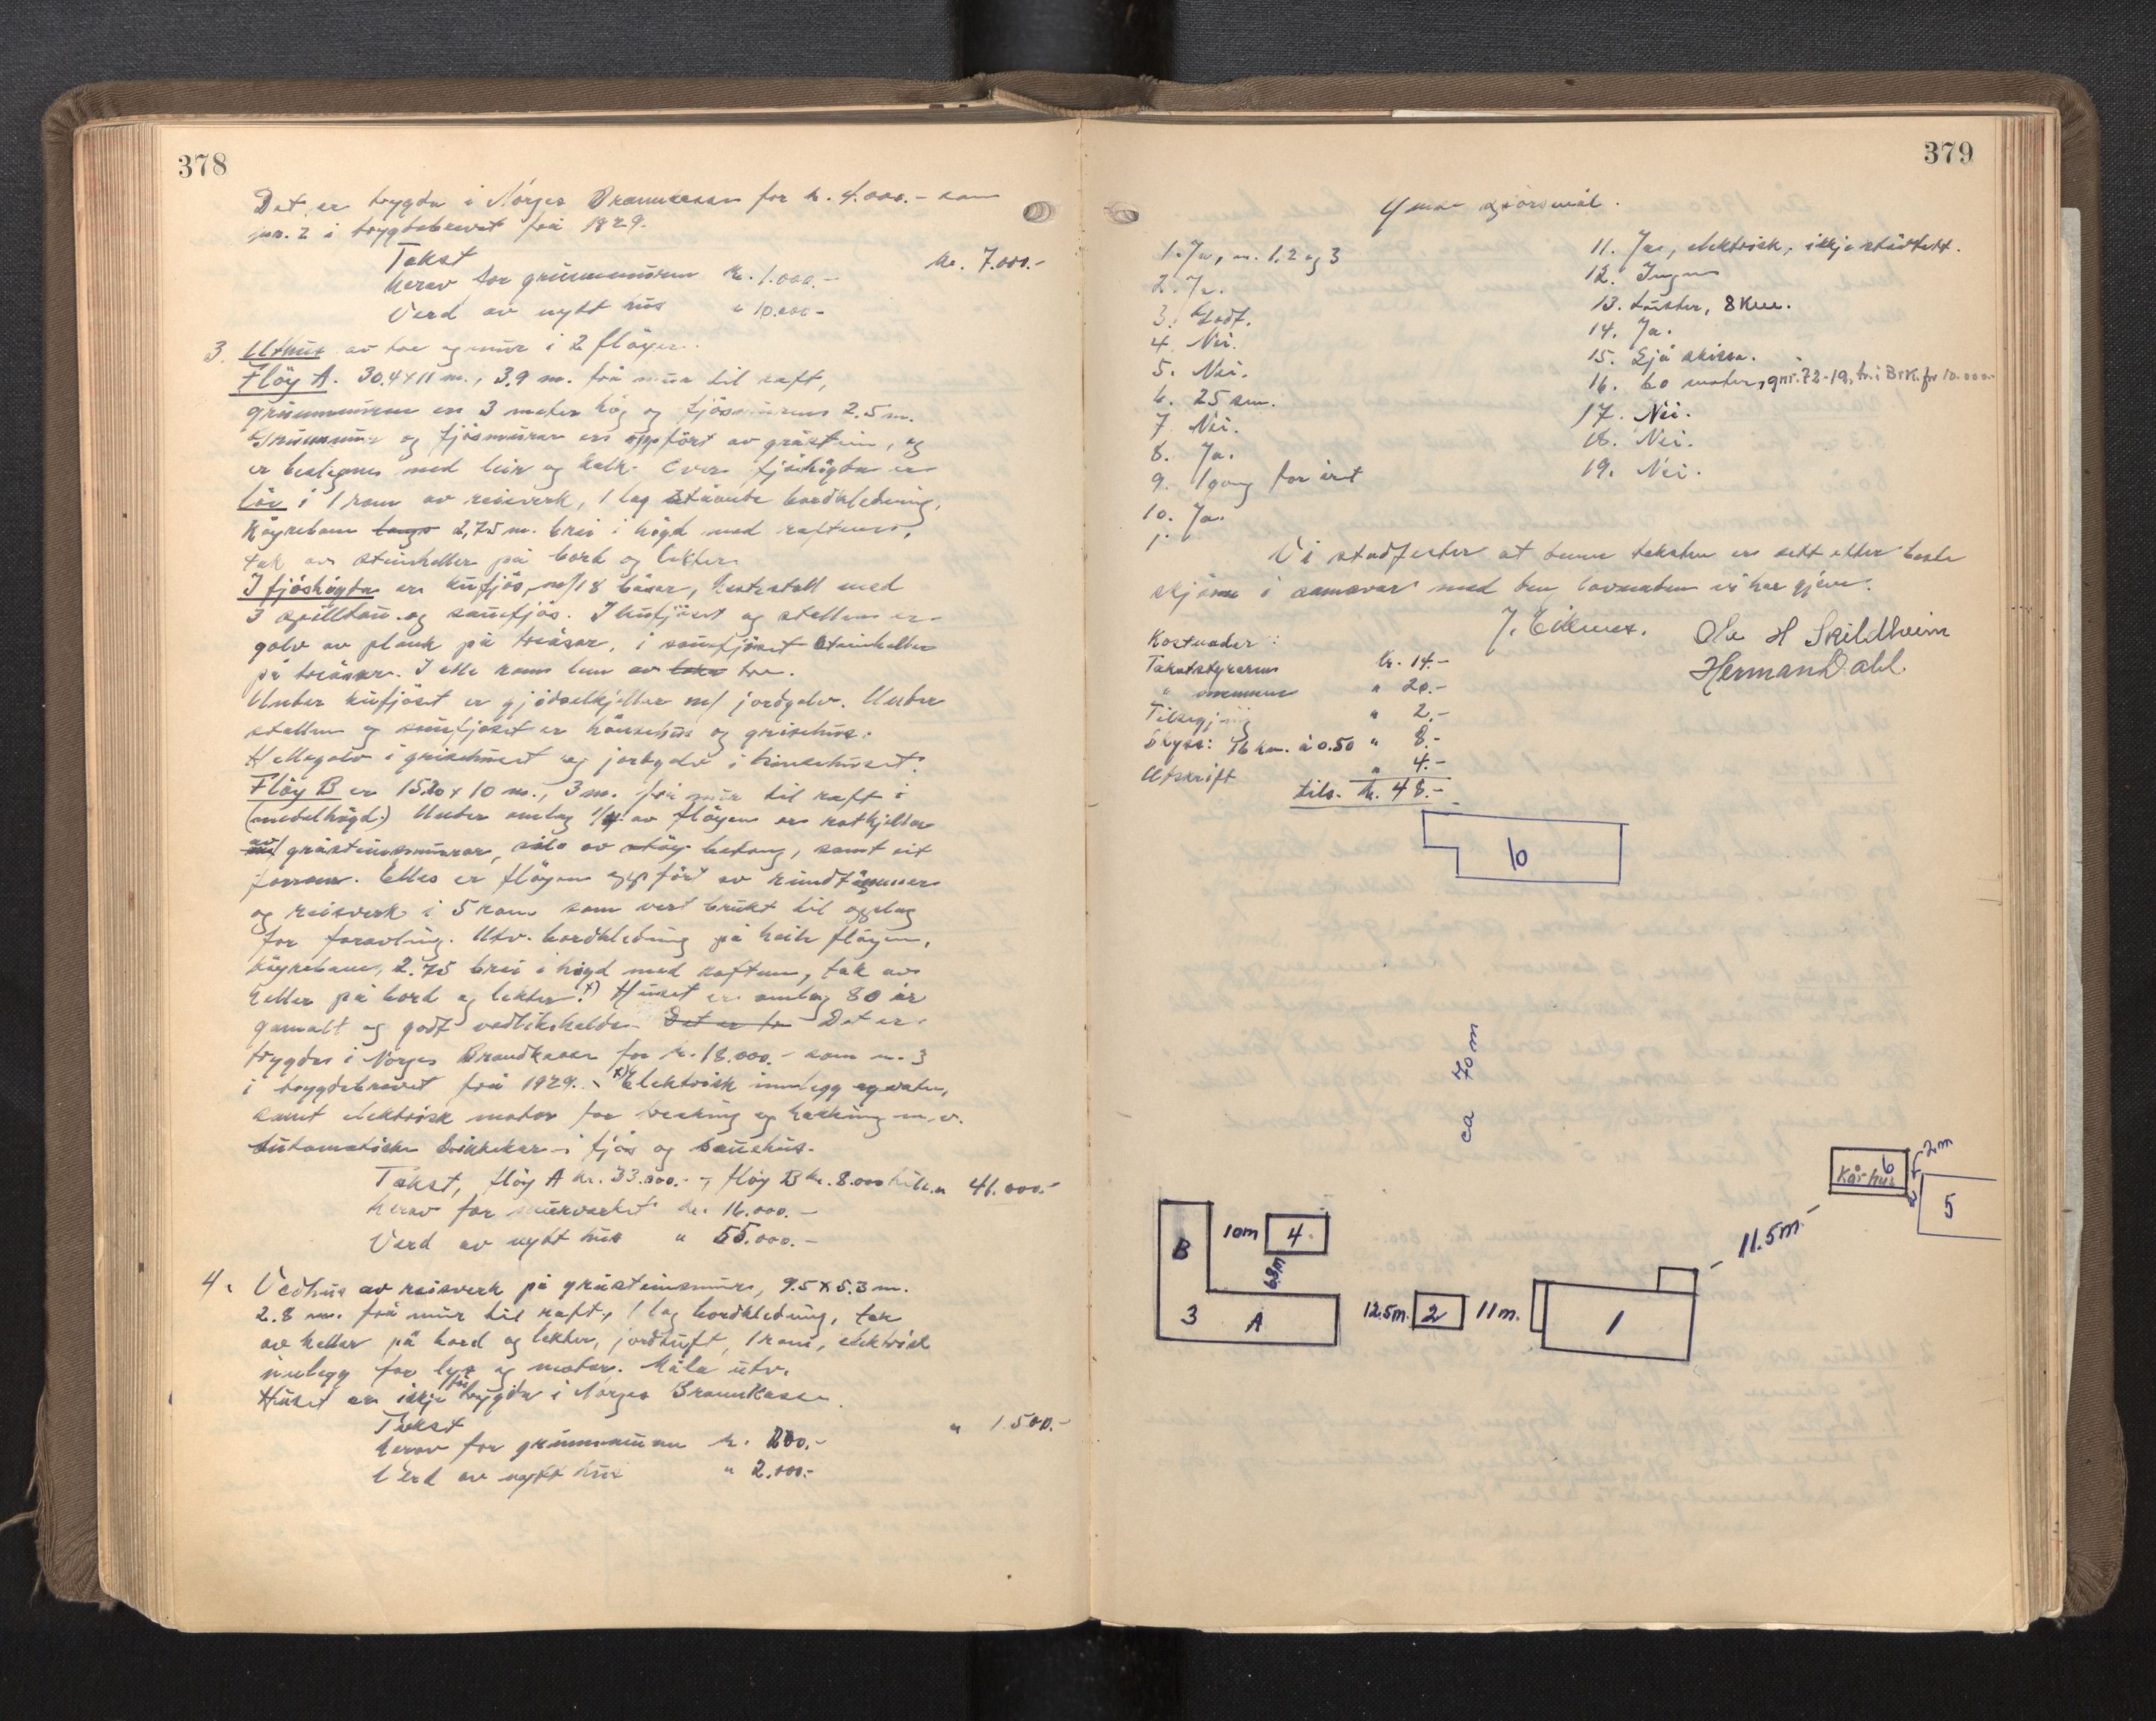 378
Det er trygda i Norges Brannkassa for kr. 4.000.- som
nr. 2 i trygdebrevet frå 1929.
Takst kr. 7.000.-
herav for grunnmuren kr. 1.000.-
Verd av nytt hus " 10.000-
3. Uthus av tre og mur i 2 fløyer.
Fløy A. 30.4x11 m., 3.9 m. frå mur til raft,
grunnmuren er 3 meter høg og fjøsmuren 2.5 m.
Grunnmur og fjøsmurar er oppført av gråstein, og
er med leir og kalk. Over fjøshøgda er
løe i 1 rom av reisverk, 1 lag ståande bordkledning,
køyrebane langs 2,75 m. brei i høgd med raftene,
tak av steinheller på bord og lekter.
I fjøshøgda er kufjøs, m/18 båsar, hestestall med
3 spilltau og sauefjøs. I kufjøset og stallen er
golv av plank på treåsar, i sauefjøset steinheller
på treåsar. I alle rom himl av tre.
Under kufjøset er gjødselkjellar m/ jordgolv. Under
stallen og sauefjøset er hønsehus og grisehus.
Hellegolv i grisehuset og jordgolv i hønsehuset.
Fløy B er 15.20 x 10 m., 3 m. frå mur til raft i
(medelhøgd.) Under omlag 1/4 av fløyen er rotkjellar
av gråsteinsmurar, silo av støy betong, samt eit
forrom. Elles er fløyen oppført av rundtømmer
og reisverk i 5 rom som vert brukt til opplag
for foravling. Utv. bordkledning på heile fløyen,
køyrebane, 2.75 brei i høgd med raftene, tak av
heller på bord og lekter. x) Huset er omlag 80 år
gamalt og godt vedlikehalde. Det er tr Det er
trygda i Norges Brandkassa for kr. 18.000.- som nr. 3
i trygdebrevet frå 1929. x) Elektrisk innlegg og vatn,
samt elektrisk motor for tresking og hakking m.v.
Automatiske drikkekar i fjøs og sauehus.
Takst, fløy A kr. 33.000.-, fløy B kr. 8.000 tils. " 41.000.-
herav for murverket kr. 16.000.-
Verd av nytt hus " 55.000.-
4. Vedhus av reisverk på gråsteinsmur, 9.5 x 5.3 m.
2.8 m. frå mur til raft, 1 lag bordkledning, tak
av heller på bord og lekter, jordtuft, 1 rom, elektrisk
innlegg for lys og motor. Måla utv.
Huset er ikkje før trygda i Norges Brannkassa.
Takst " 1.500.-
herav for grunnmuren kr. 200.-
Verd av nytt hus " 2.000.-
379
Ymse spørsmål.
1. Ja, nr. 1, 2 og 3
2. Ja.
3. Godt.
4. Nei.
5. Nei.
6. 25 cm.
7. Nei.
8. Ja.
9. 1 gong for året
10. Ja.
11. Ja, elektrisk, ikkje
12. Ingen
13. Lüster, 8 km.
14. Ja.
15. Sjå skissa.
16. 60 meter, gnr. 72-19, tr. i Brk. for 10.000.-
17. Nei.
18. Nei.
19. Nei.
Vi stadfester at denne taksten er sett etter beste
skjønn i samsvar med den lovnaden vi har gjeve.
J. Eikenes. Ole H Skildheim
Hermann Dahl.
Kostnader:
Takststyraren kr. 14.-
" mennene " 20.-
Tilsegjing " 2.-
Skyss: 16 km. à 0.50 " 8.-
Utskrift " 4.-
tils. kr. 48.-
10
ca 70 m
6
Kårhus
2m
5
11.5m
B
10m
4
6.8m
3
A
12.5m.
2
11m.
1